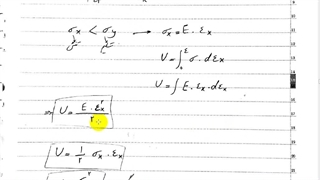 σₓ < σᵧ → σₓ = E . εₓ
U = ∫₀^ε σ . dεₓ
U = ∫ E . εₓ . dεₓ
⇒ U = E . εₓ^۲ / ۲
U = ۱/۲ σₓ . εₓ